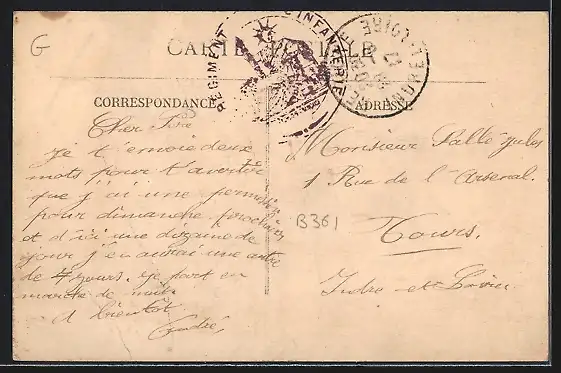 G
CARTE POSTALE
REGIMENT INFANTERIE
CORRESPONDANCE
ADRESSE
Cher Père
Je t'envoie deux
mots pour t'avertir
que j'ai une permission
pour dimanche prochain
et d'ici une dizaine de
jours j'en aurai une autre
de 4 jours. Je part en
de nuit
A bientôt
André
Monsieur Sallé Jules
1 Rue de l'Arsenal.
B361
Tours.
Indre et Loire